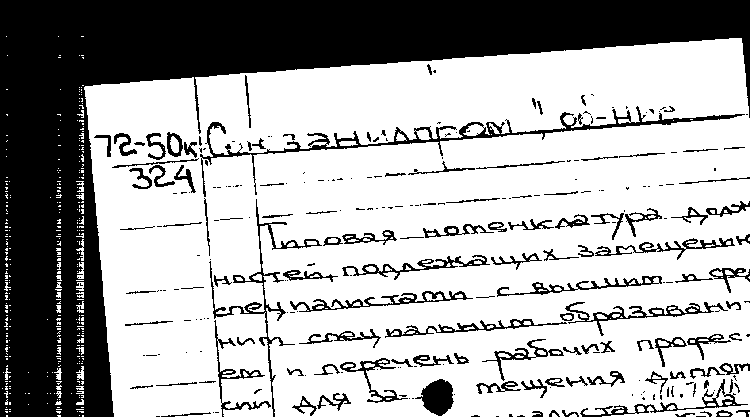 72-50к
324
"Союзанилпром", об-ние
Типовая номенклатура долж
ностей, подлежащих замещению
специалистами с высшим и сред
ним специальным образовани-
ем, и перечень рабочих профес-
сий для за- мещения диплом
на